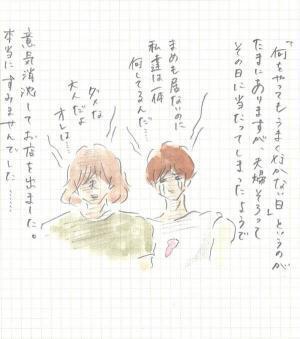 「何をやってもうまく行かない日」というのが
たまにありますが、夫婦そろって
その日に当たってしまったようで
まめも居ないのに
私達は一体
何してるんだ…
ダメな
大人だよ
オレは…
意気消沈してお店を出ました。
本当にすみませんでした……